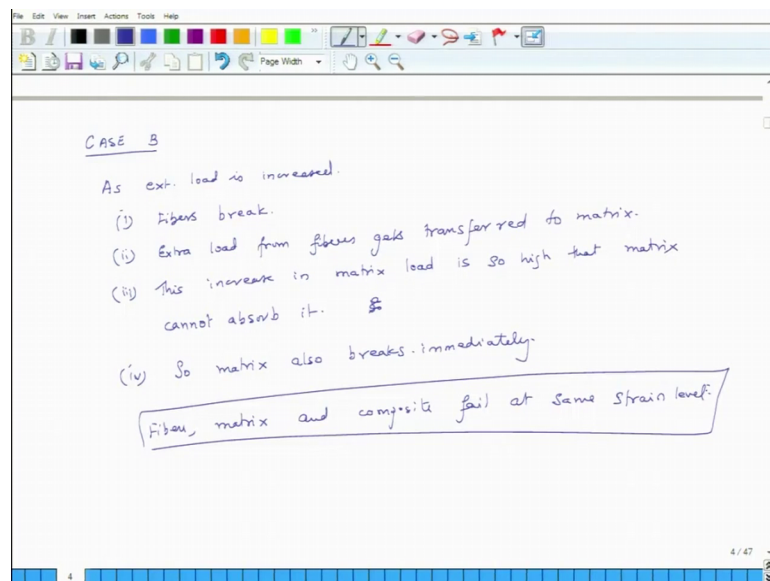 File Edit View Insert Actions Tools Help
B I
Page Width
CASE 3
As ext. load is increased.
(i) Fibers break.
(ii) Extra load from fibers gets transferred to matrix.
(iii) This increase in matrix load is so high that matrix
cannot absorb it.
(iv) So matrix also breaks immediately.
Fiber, matrix and composite fail at same strain level.
4 / 47
4